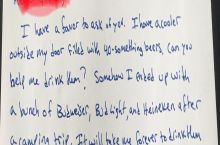 I have a favor to ask of you. I have a cooler
outside my door filled with 40-something beers, can you
help me drink them? Somehow I ended up with
a bunch of Budweiser, Bud Light and Heineken after
a camping trip. It will take me forever to drink them